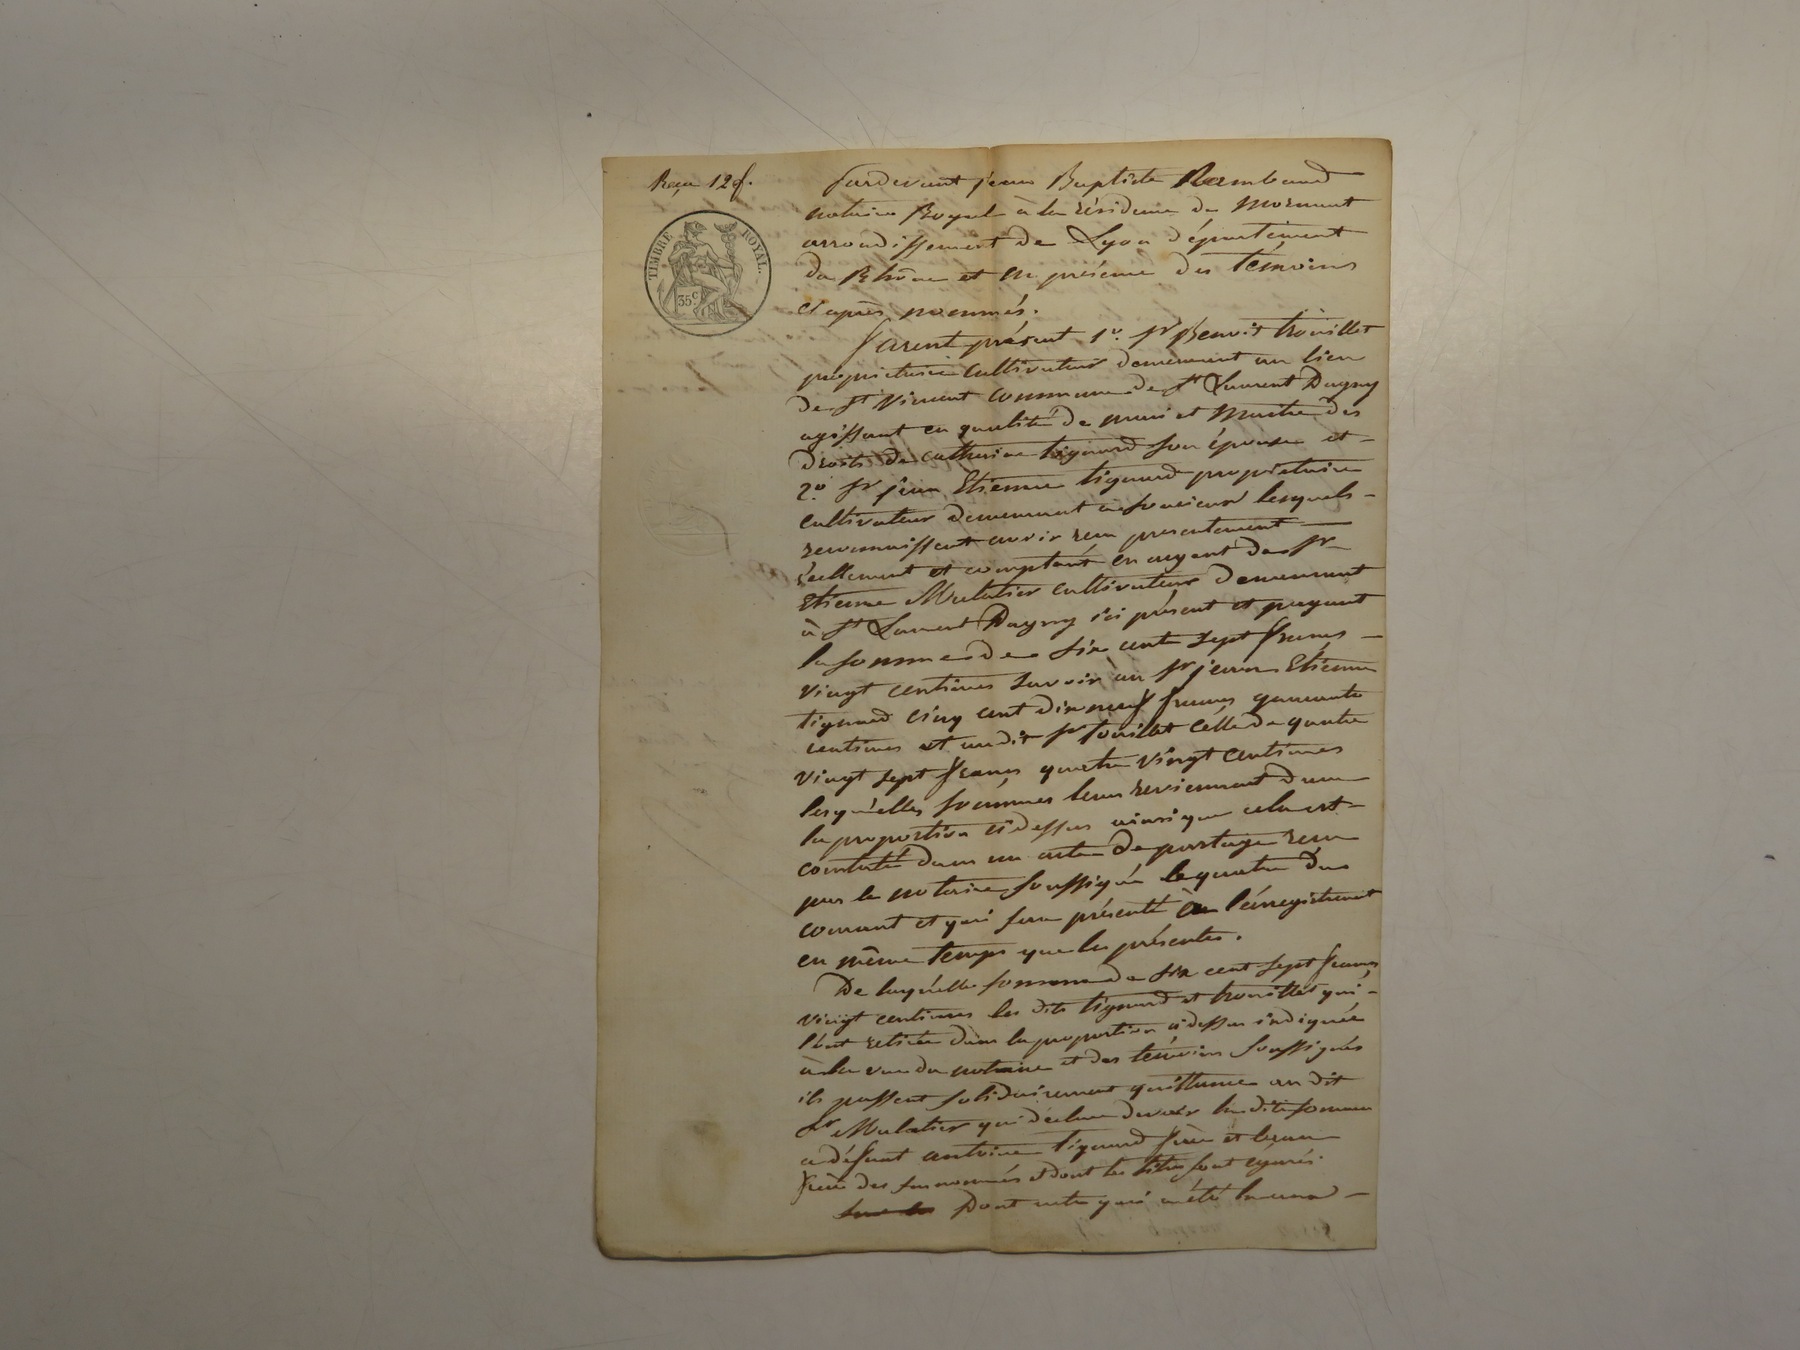 Reçu 12 f.
TIMBRE ROYAL.
35 c
Pardevant jean Baptiste Rambaud
notaire Royal à la résidence de Mornant
arrondissement de Lyon département
du Rhône et en présence des témoins
ci après nommés.
Furent présent 1º. Sr Benoit trouillet
propriétaire cultivateur demeurant au lieu
de St Vincent commune de St Laurent Dagny
agissant en qualité de mari et Maitre des
droits de catherine tignard son épouse et
2º. Sr jean Etienne tignard propriétaire
cultivateur demeurant à soucieux lesquels
reconnaissent avoir reçu presentement
réellement et comptant en argent de Sr
Etienne Mulatier cultivateur demeurant
à St Laurent Dagny ici présent et payant
la somme de six cent sept francs
vingt centimes savoir au Sr jean Etienne
tignard cinq cent dix neuf francs quarante
centimes et audit Sr trouillet celle de quatre
vingt sept francs quatre vingt centimes
lesquelles sommes leur reviennent dans
la proportion ci dessus ainsi que cela est
constaté dans un acte de partage reçu
par le notaire soussigné le quatre du
courant et qui sera présenté à l'énregistrement
en même temps que les présentes.
De laquelle somme de six cent sept francs
vingt centimes les dits tignard et trouillet qui
l'ont retirée dans la proportion ci dessus indiquée
à la vue du notaire et des témoins soussignés
ils passent solidairement quittance au dit
Sr Mulatier qui déclare devoir la dite somme
a défunt antoine tignard frère et beau
frère des susnommés et dont les titres sont égarés.
Dont acte qui a été lu aux